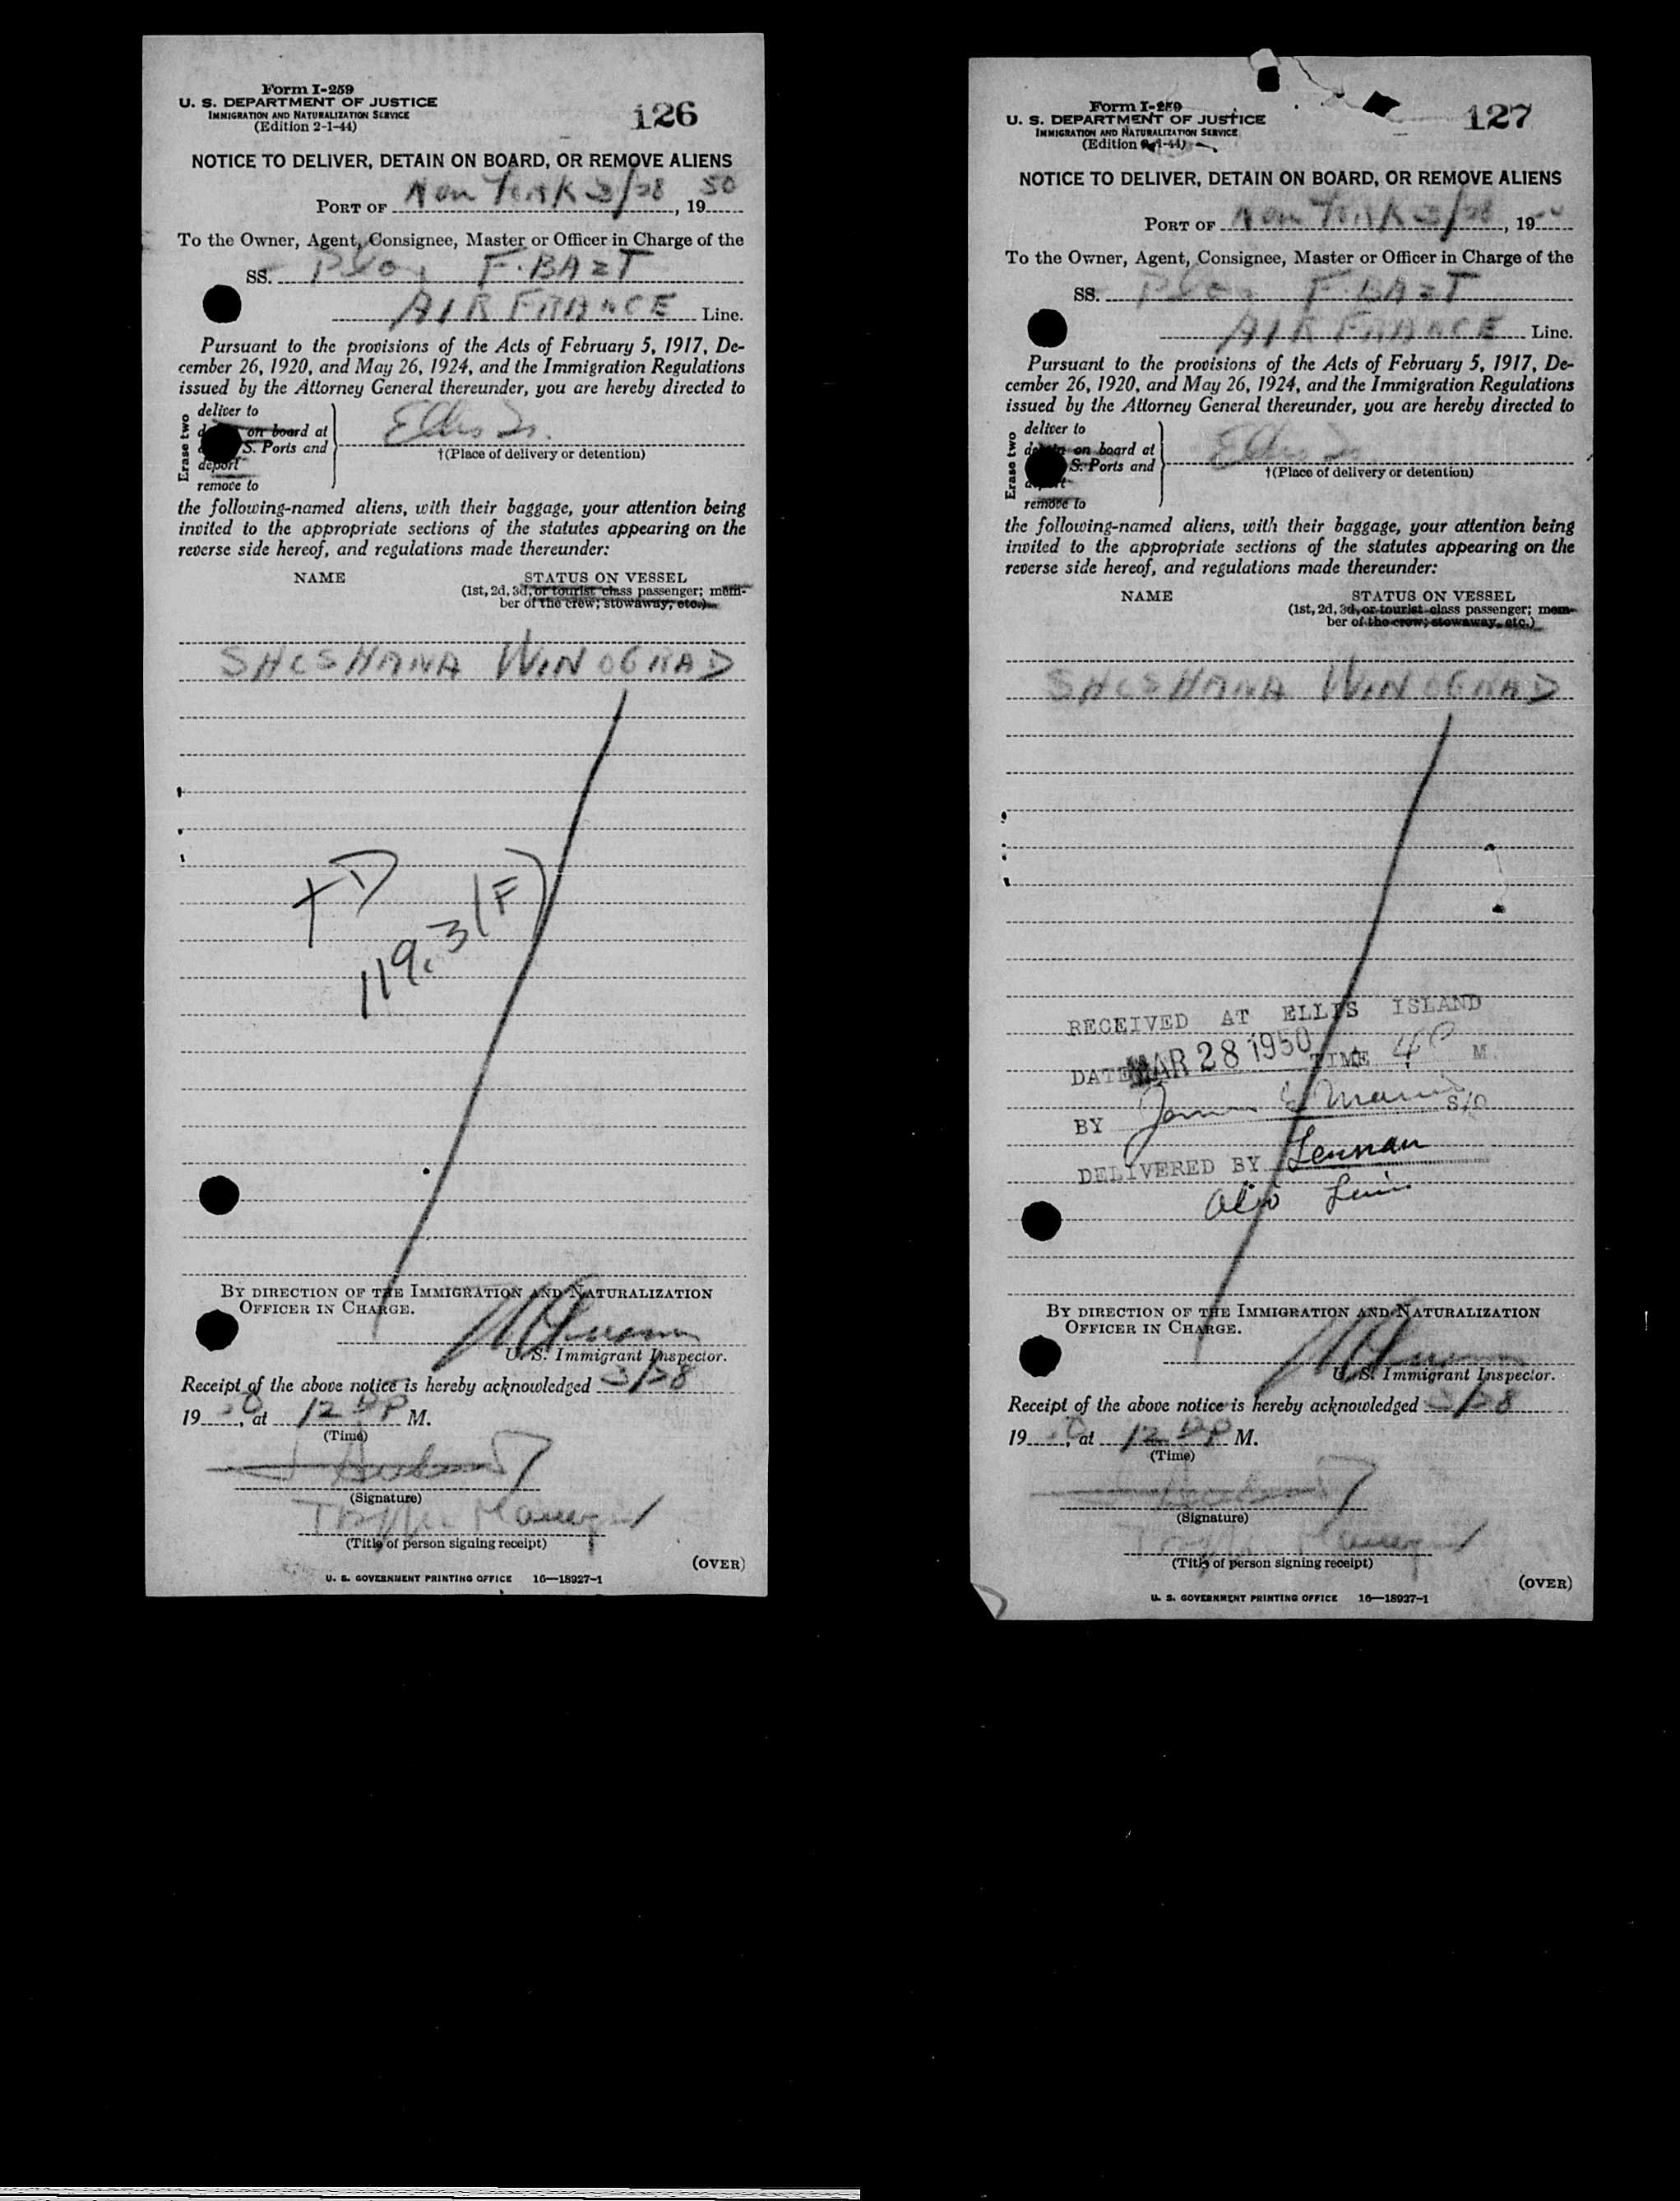 Form I-259
U. S. DEPARTMENT OF JUSTICE
IMMIGRATION AND NATURALIZATION SERVICE
(Edition 2-1-44)
126
NOTICE TO DELIVER, DETAIN ON BOARD, OR REMOVE ALIENS
PORT OF New York 3/28, 1950
To the Owner, Agent, Consignee, Master or Officer in Charge of the
SS. F.BAZT
AIR FRANCE Line.
Pursuant to the provisions of the Acts of February 5, 1917, De-
cember 26, 1920, and May 26, 1924, and the Immigration Regulations
issued by the Attorney General thereunder, you are hereby directed to
Erase two
deliver to
on board at
S. Ports and
deport
remove to
Ellis Is.
†(Place of delivery or detention)
the following-named aliens, with their baggage, your attention being
invited to the appropriate sections of the statutes appearing on the
reverse side hereof, and regulations made thereunder:
NAME STATUS ON VESSEL
(1st, 2d, 3d, or tourist class passenger; mem-
ber of the crew; stowaway, etc.)
SHOSHANA WINOGRAD
TD
119.3(F)
BY DIRECTION OF THE IMMIGRATION AND NATURALIZATION
OFFICER IN CHARGE.
U. S. Immigrant Inspector.
Receipt of the above notice is hereby acknowledged 3/28
1950, at 12 P M.
(Time)
(Signature)
Traffic
(Title of person signing receipt)
(OVER)
U. S. GOVERNMENT PRINTING OFFICE 16—18927-1
Form I-259
U. S. DEPARTMENT OF JUSTICE
IMMIGRATION AND NATURALIZATION SERVICE
(Edition 2-1-44)
127
NOTICE TO DELIVER, DETAIN ON BOARD, OR REMOVE ALIENS
PORT OF New York 3/28, 19
To the Owner, Agent, Consignee, Master or Officer in Charge of the
SS. F.BAZT
AIR FRANCE Line.
Pursuant to the provisions of the Acts of February 5, 1917, De-
cember 26, 1920, and May 26, 1924, and the Immigration Regulations
issued by the Attorney General thereunder, you are hereby directed to
Erase two
deliver to
detain on board at
S. Ports and
deport
remove to
Ellis Is
†(Place of delivery or detention)
the following-named aliens, with their baggage, your attention being
invited to the appropriate sections of the statutes appearing on the
reverse side hereof, and regulations made thereunder:
NAME STATUS ON VESSEL
(1st, 2d, 3d, or tourist class passenger; mem-
ber of the crew; stowaway, etc.)
SHOSHANA WINOGRAD
RECEIVED AT ELLIS ISLAND
DATE MAR 28 1950 TIME 4P M.
BY S/O
DELIVERED BY Lennan
BY DIRECTION OF THE IMMIGRATION AND NATURALIZATION
OFFICER IN CHARGE.
U. S. Immigrant Inspector.
Receipt of the above notice is hereby acknowledged 3/28
1950, at 12 P M.
(Time)
(Signature)
Traffic
(Title of person signing receipt)
(OVER)
U. S. GOVERNMENT PRINTING OFFICE 16—18927-1